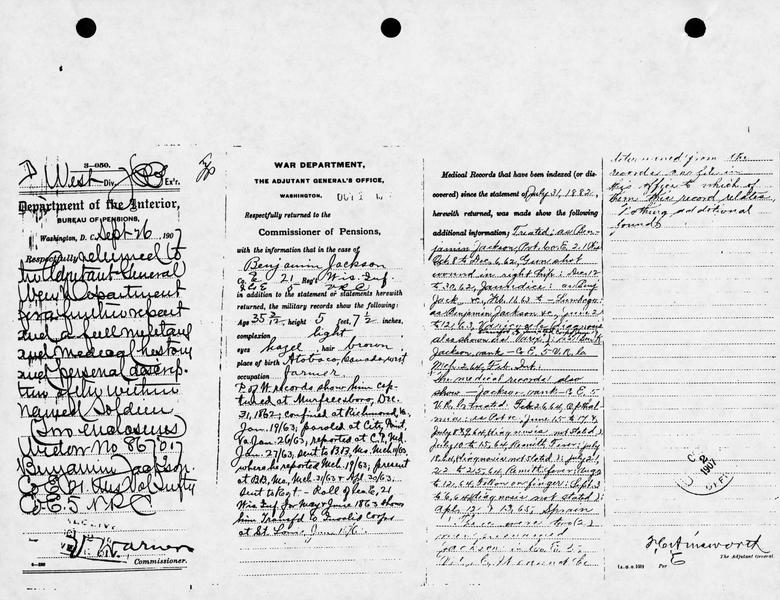 3-050.
West Div. Ex'r.
Department of the Interior,
BUREAU OF PENSIONS,
Washington, D. C., Sept 26, 1907
Respectfully returned to
the Adjutant General
War Department
for a further report
and a full military
and medical history
and personal descrip-
tion of the within
named soldier
Two enclosures
No 867017
Benjamin Jackson
Co E 21 Wis Vol Inf
Co E. 5 V.R.C
Warner
Commissioner.
WAR DEPARTMENT,
THE ADJUTANT GENERAL'S OFFICE,
WASHINGTON,
Respectfully returned to the
Commissioner of Pensions,
with the information that in the case of
Benjamin Jackson
Co. E 21 Reg't Wis. Inf.
V R C
in addition to the statement or statements herewith
returned, the military records show the following:
Age 35 height 5 feet, 7 1/2 inches,
complexion light
eyes hazel, hair brown,
place of birth Canada west
occupation farmer.
P. of W. records show him cap-
tured at Murfreesboro, Dec.
31, 1862; confined at Richmond, Va.
Jan. 19/63; paroled at City Point,
Va. Jan. 26/63, reported at C. P. Md.
Jan. 27/63, sent to B.B. Mo. Mch 11/63
where he reported Mch. 19/63; present
at B.B., Mo., Mch. 31/63 & Apl. 30/63.
Sent to Regt - Roll of Co. E, 21
Wis Inf. for May & June 1863 shows
him Transfd to Invalid Corps
at St. Louis,
Medical Records that have been indexed (or dis-
covered) since the statement of July 31, 1882,
herewith returned, was made show the following
additional information: Treated; as Ben-
jamin Jackson, Pvt. Co. E. 21
Oct 8 to Dec. 6, 62, Gun shot
wound in right hip: Dec. 12
to 30, 62, Jaundice: as Benj
Jack, &c., Feb. 16, 63 to
as Benjamin Jackson &c., June 2
also shown as
Jackson, rank - Co E, 5 V.R.C.
Mch. 2, 64, Feb. Int.
The medical records also
show - Jackson, rank - Co. E. 5
V.R.C. treated: Feb. 26, 64,
as Pvt. &c. June 15 to 17, &
July 8, 9, 64, (diagnosis not stated)
July 10 to 15, 64, Remitt. Fever: July
22 to 25, 64, Remitt. fever: Aug
12, 64, Felon on finger: Sept. 3
to 6, 64 (diagnosis not stated):
Apl. 12 & 13, 65, Sprain
There were two (2)
men named
Jackson in Co. E. 5
determined from the
records on file in
this office to which of
them this record relates.
Nothing additional
found.
2
1907
F. C. Ainsworth
The Adjutant General.
Per